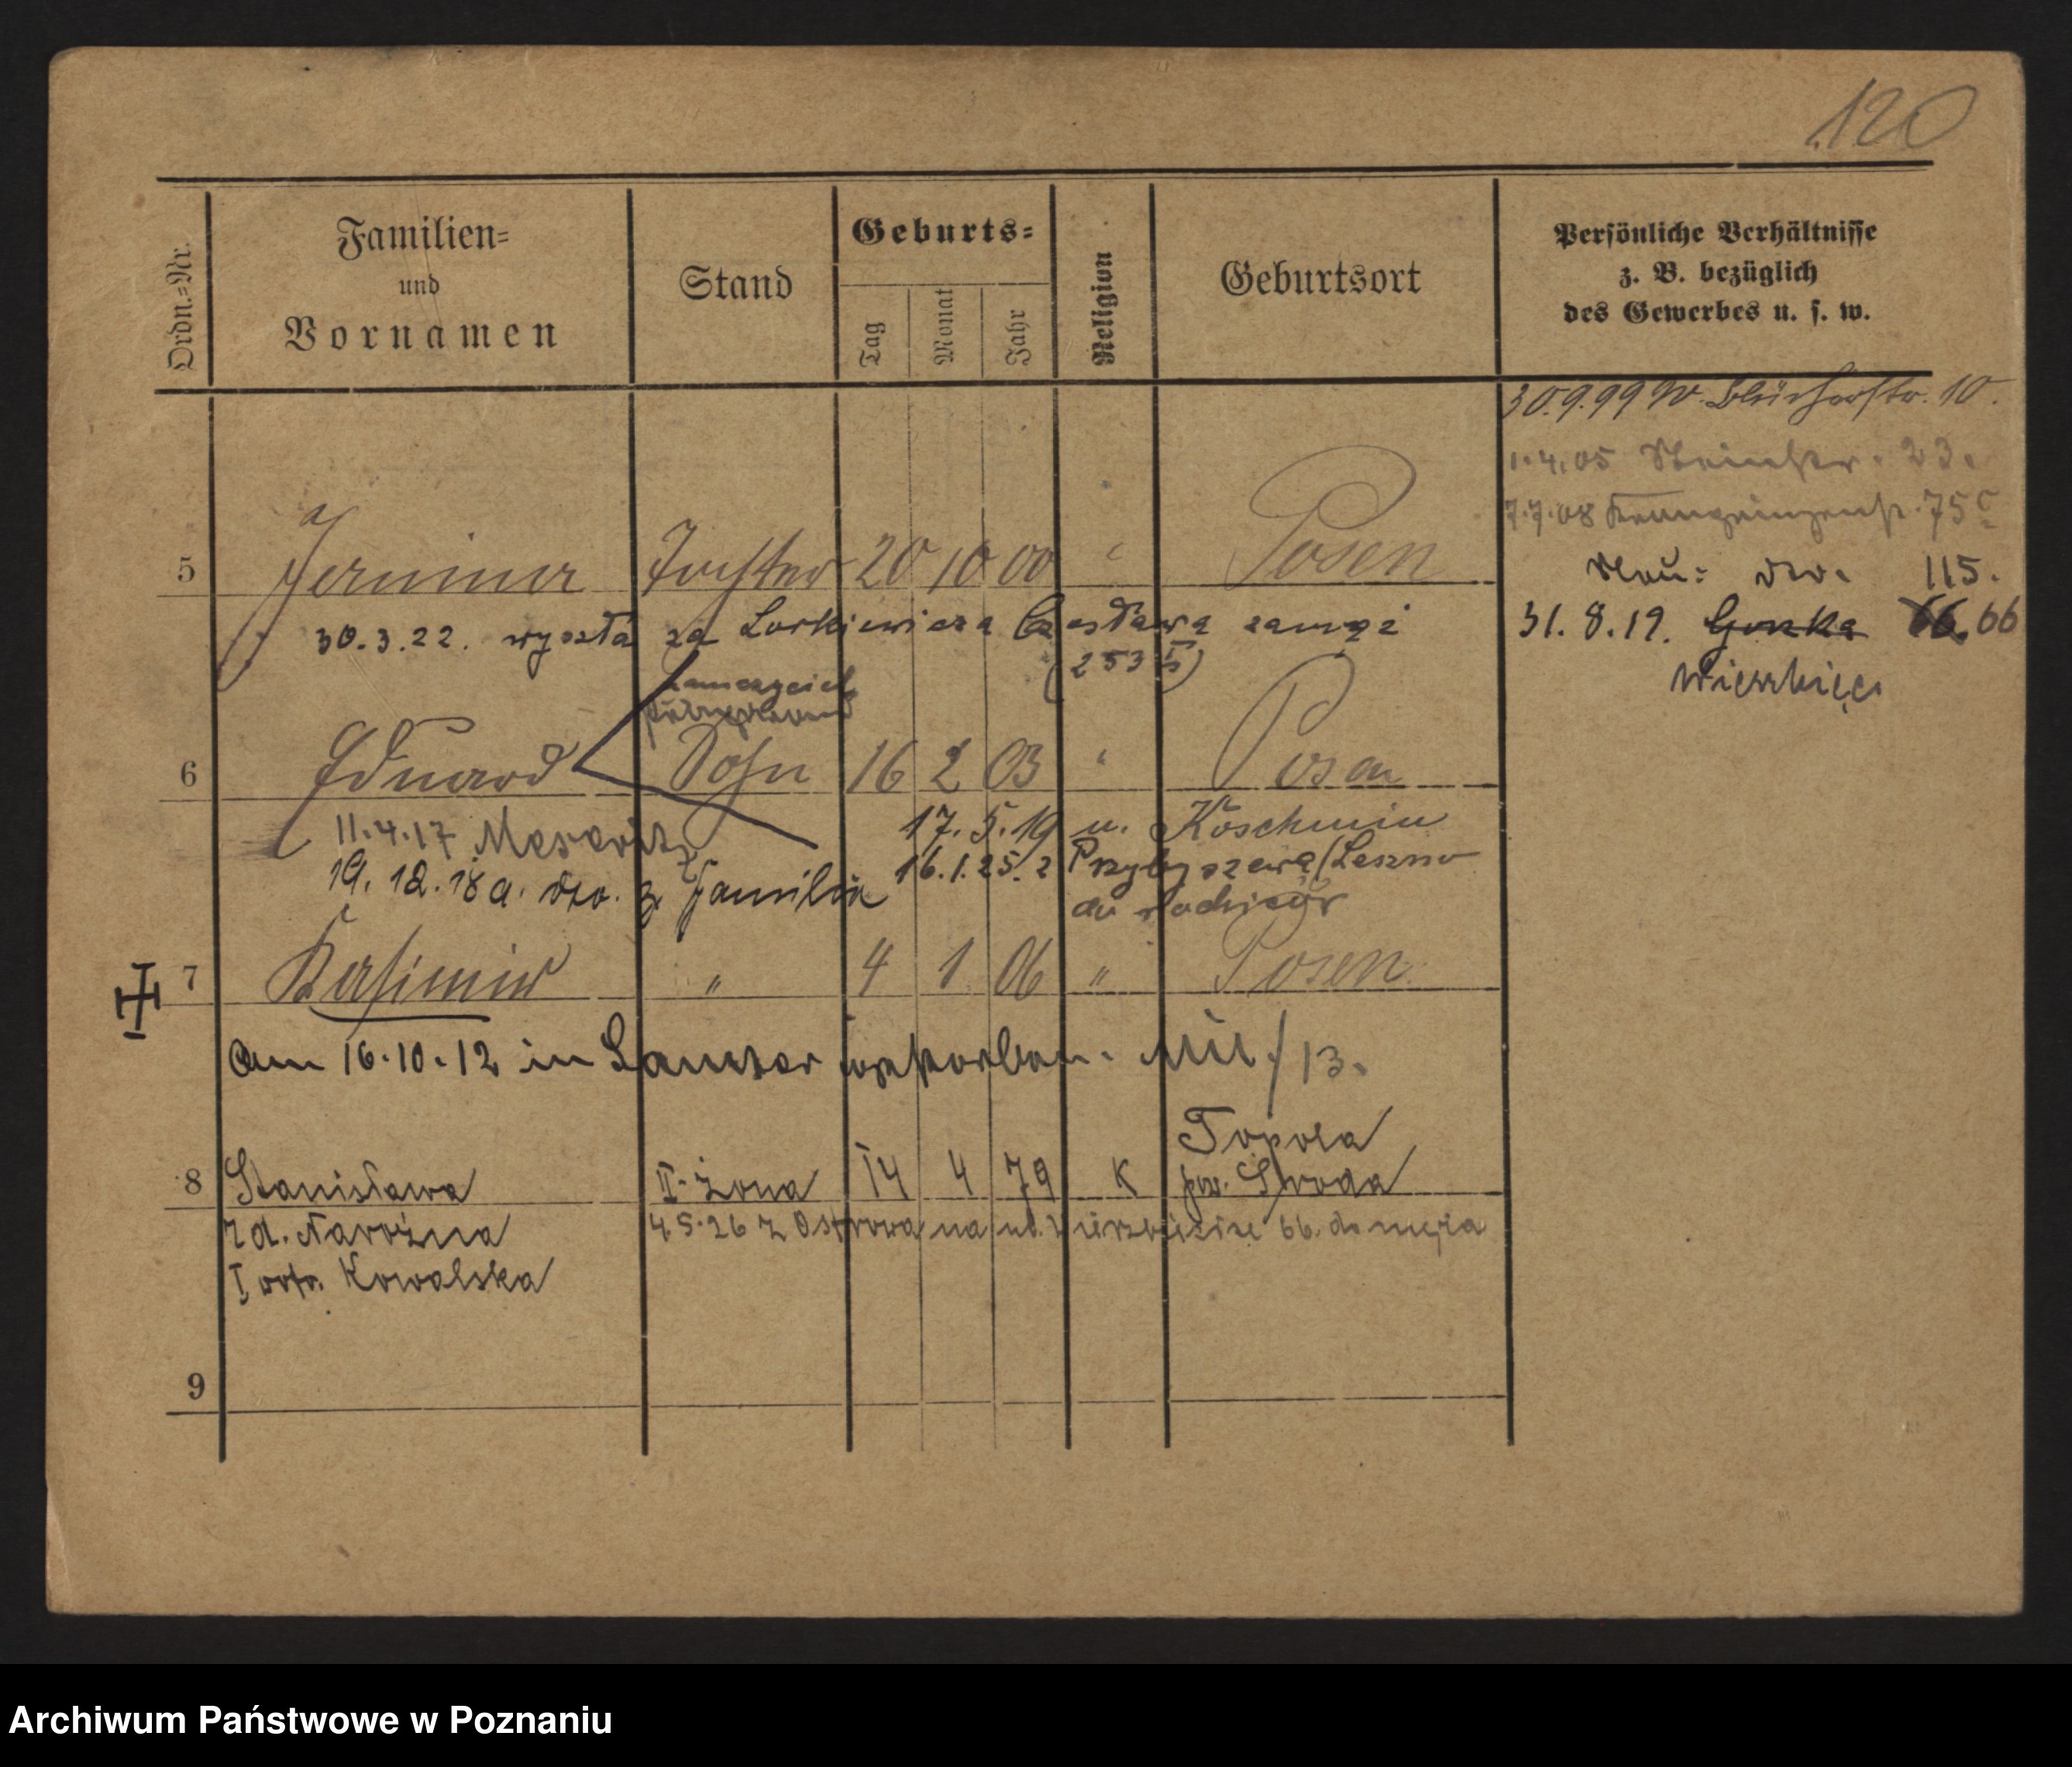 120
Ordn.=Nr.
Familien=
und
Vornamen
Stand
Geburts=
Tag
Monat
Jahr
Religion
Geburtsort
Persönliche Verhältnisse
z. B. bezüglich
des Gewerbes u. s. w.
30.9.99 W. Blücherstr. 10.
1.4.05 Steinstr. 23.
7.7.08 Kronprinzenstr. 75
Neu: dto. 115.
31.8.19. 66. 66
Wierzbięci
5 Tochter 20 10 00 " Posen
30.3.22. wyszła za Lorkiewicza Czesława zamąż
(253
6 Eduard Sohn 16 2 03 " Posen
11.4.17 Meseritz 17.5.19 n. Koschmin
19.12.18 a. dto. z Familie 16.1.25. z Przybyszewa/Leszno
do rodziców
7 Kasimir " 4 1 06 " Posen
Am 16.10.12 in gestorben. /13.
8 Stanisława II. żona 14 4 79 K Topola
pow. Środa
zd. Narożna 4.5.26 z Ostrowa na ul. Wierzbięcice 66. do męża
I Kowalska
9
Archiwum Państwowe w Poznaniu